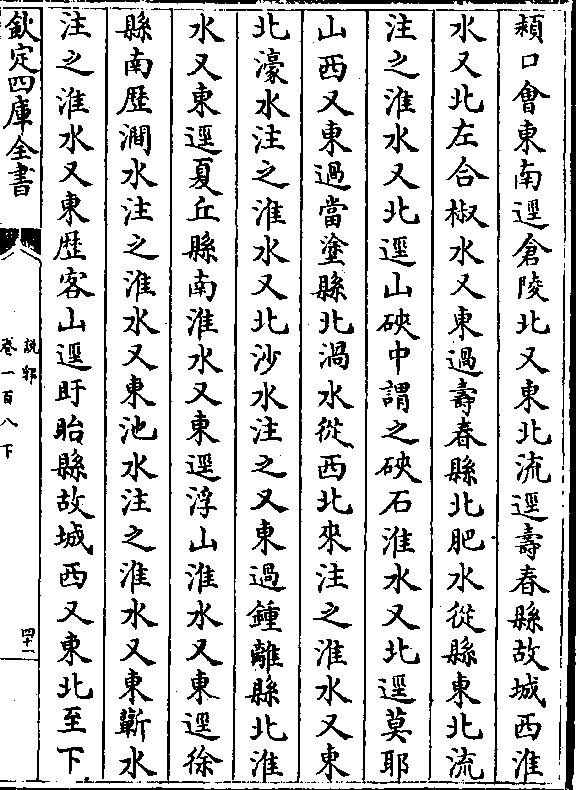 潁口會東南逕倉陵北又東北流逕壽春縣故城西淮
水又北左合椒水又東過壽春縣北肥水從縣東北流
注之淮水又北逕山硤中謂之硤石淮水又北逕莫耶
山西又東過當塗縣北渦水從西北來注之淮水又東
北濠水注之淮水又北沙水注之又東過鍾離縣北淮
水又東逕夏丘縣南淮水又東逕浮山淮水又東逕徐
縣南歴澗水注之淮水又東池水注之淮水又東蘄水
注之淮水又東歴客山逕盱眙縣故城西又東北至下
欽定四庫全書
説郛
卷一百八下
四十二